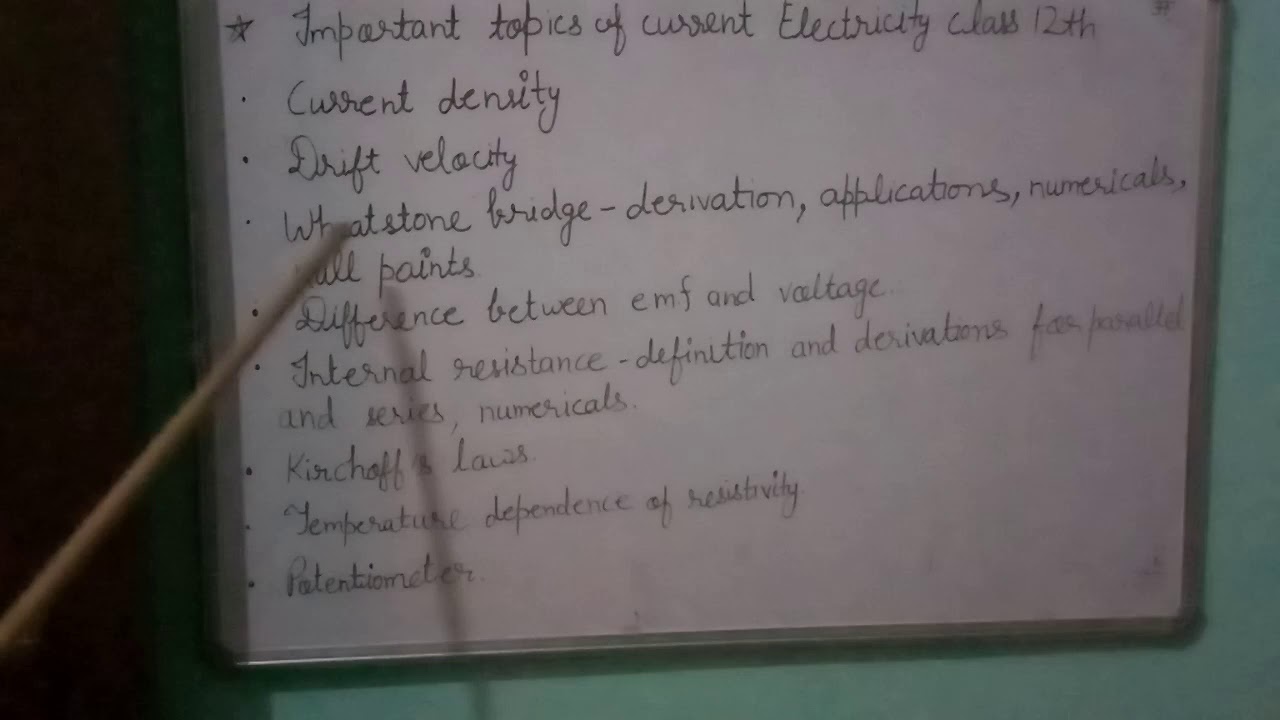 * Important topics of current Electricity class 12th
• Current density
• Drift velocity
• Whatstone bridge - derivation, applications, numericals,
points
• Difference between emf and voltage.
• Internal resistance - definition and derivations for parallel
and series, numericals.
• Kirchoff's laws.
• Temperature dependence of resistivity.
• Potentiometer.